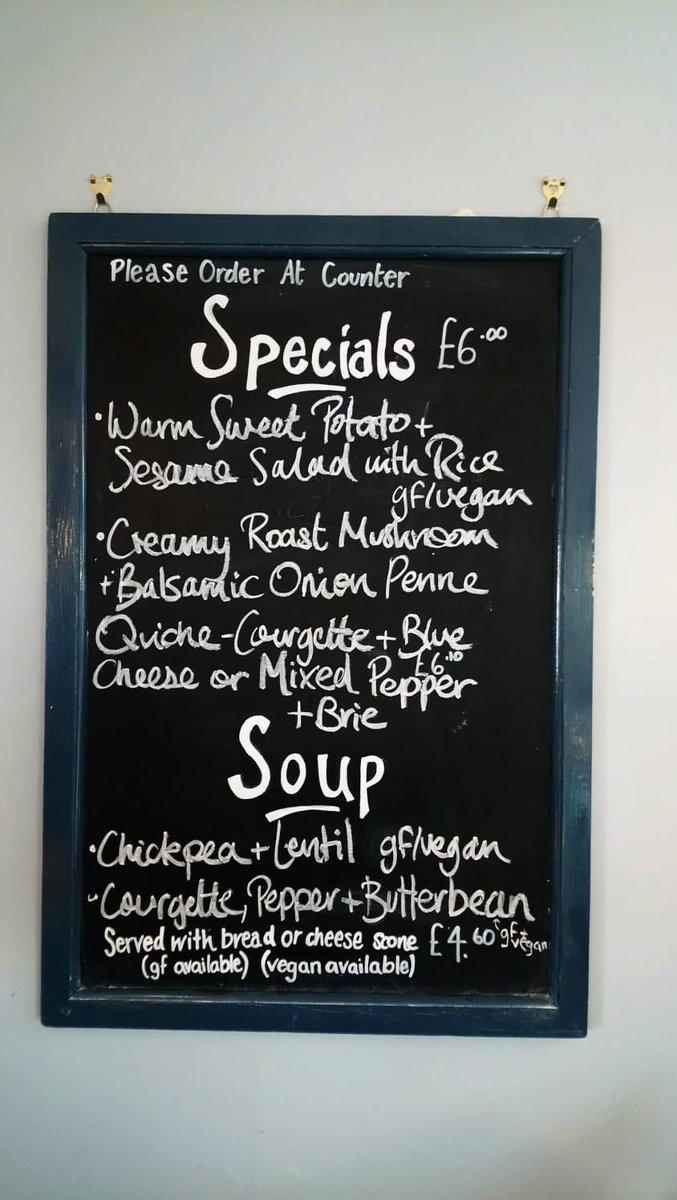 Please Order At Counter
Specials £6.00
•Warm Sweet Potato +
Sesame Salad with Rice
gf/vegan
•Creamy Roast Mushroom
+ Balsamic Onion Penne
Quiche - Courgette + Blue
Cheese or Mixed Pepper £6.10
+ Brie
Soup
•Chickpea + Lentil gf/vegan
-Courgette, Pepper + Butterbean
Served with bread or cheese scone £4.60 ↑gf+
vegan
(gf available) (vegan available)